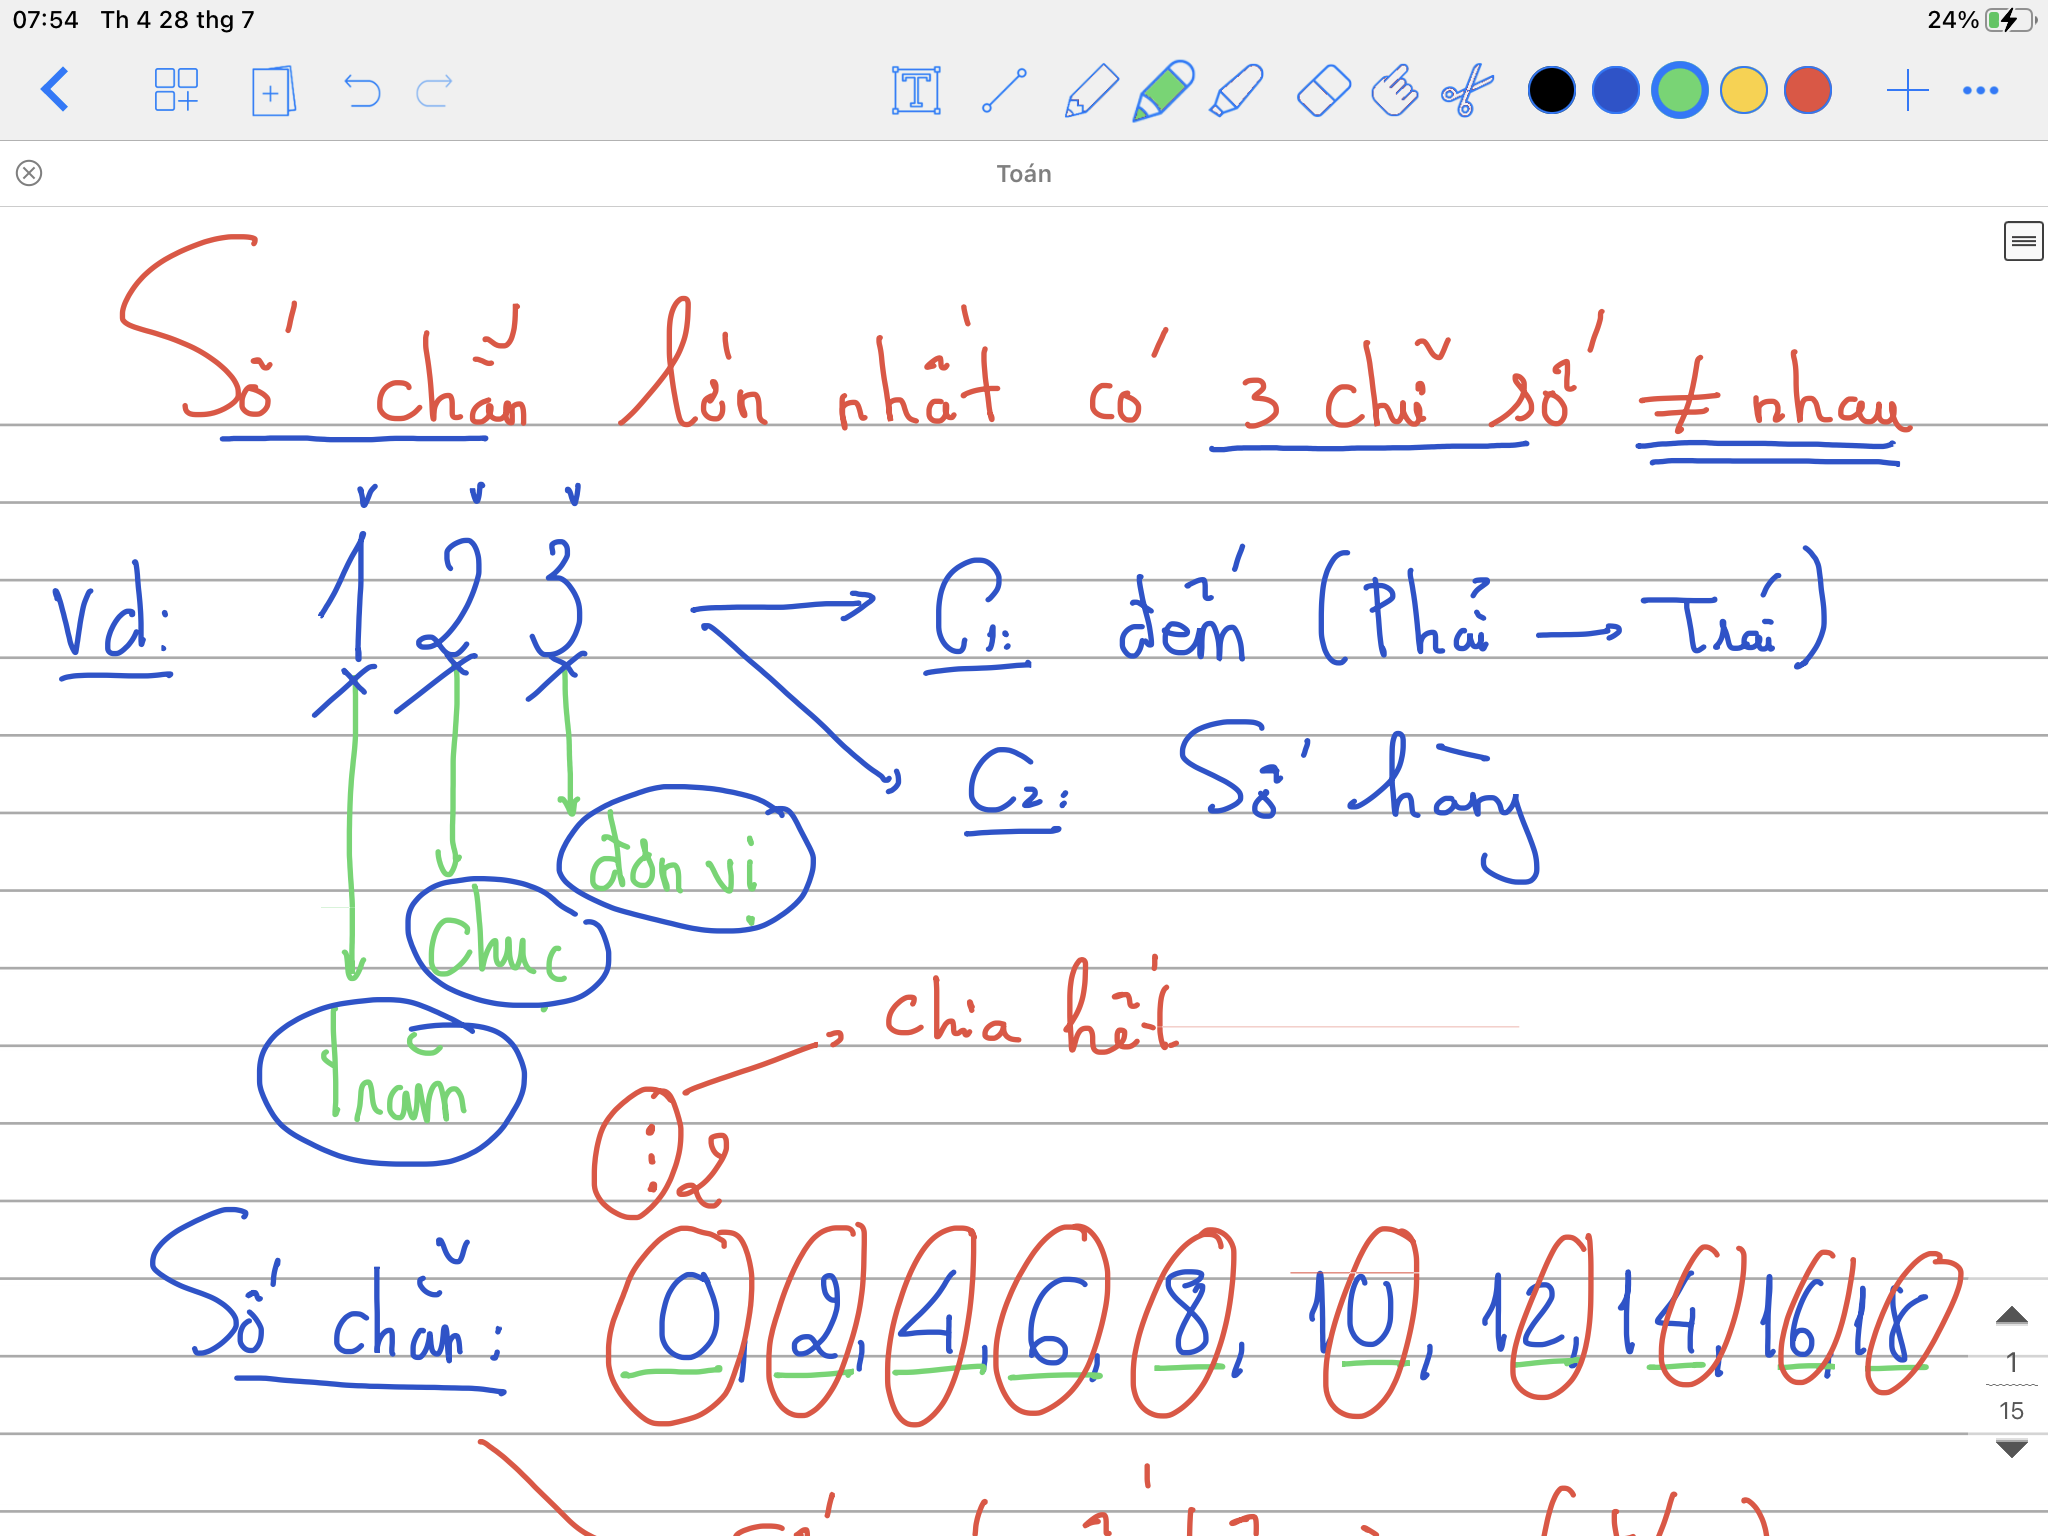 07:54 Th 4 28 thg 7 24%
T
Toán
Số chẵn lớn nhất có 3 chữ số ≠ nhau
Vd: 123 → C1: đếm (Phải → Trái)
C2: Số hàng
đơn vị
Chục
Trăm
chia hết
⋮2
Số chẵn: 0, 2, 4, 6, 8, 10, 12, 14, 16, 18
1
15